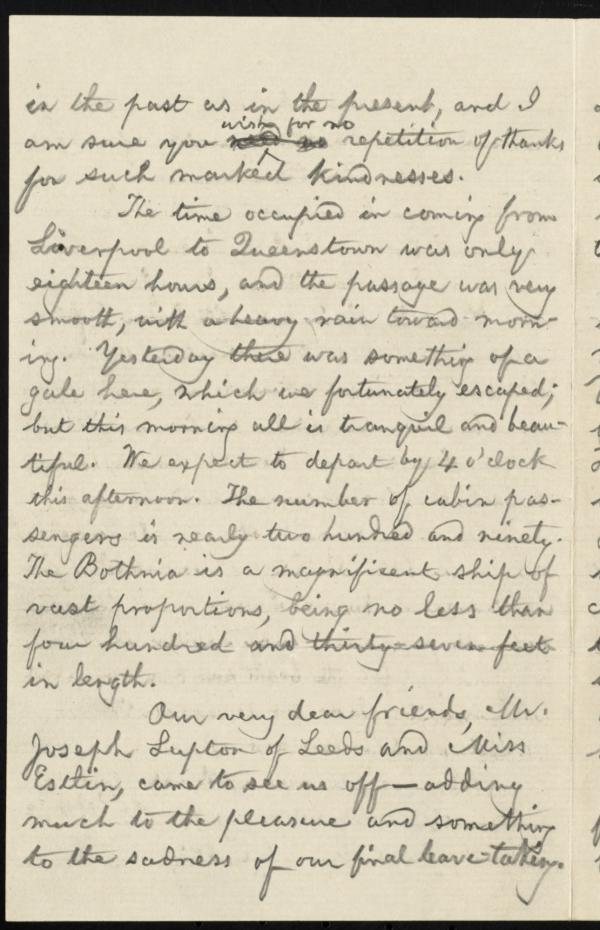 in the past as in the present, and I
am sure you wish for no repetition of thanks
for such marked kindnesses.
The time occupied in coming from
Liverpool to Queenstown was only
eighteen hours, and the passage was very
smooth, with a heavy rain toward morn-
ing. Yesterday there was something of a
gale here, which we fortunately escaped;
but this morning all is tranquil and beau-
tiful. We expect to depart by 4 o'clock
this afternoon. The number of cabin pas-
sengers is nearly two hundred and ninety.
The Bothnia is a magnificent ship of
vast proportions, being no less than
four hundred and thirty-seven feet
in length.
Our very dear friends, Mr.
Joseph Lupton of Leeds and Miss
Estlin, came to see us off—adding
much to the pleasure and something
to the sadness of our final leave-taking.